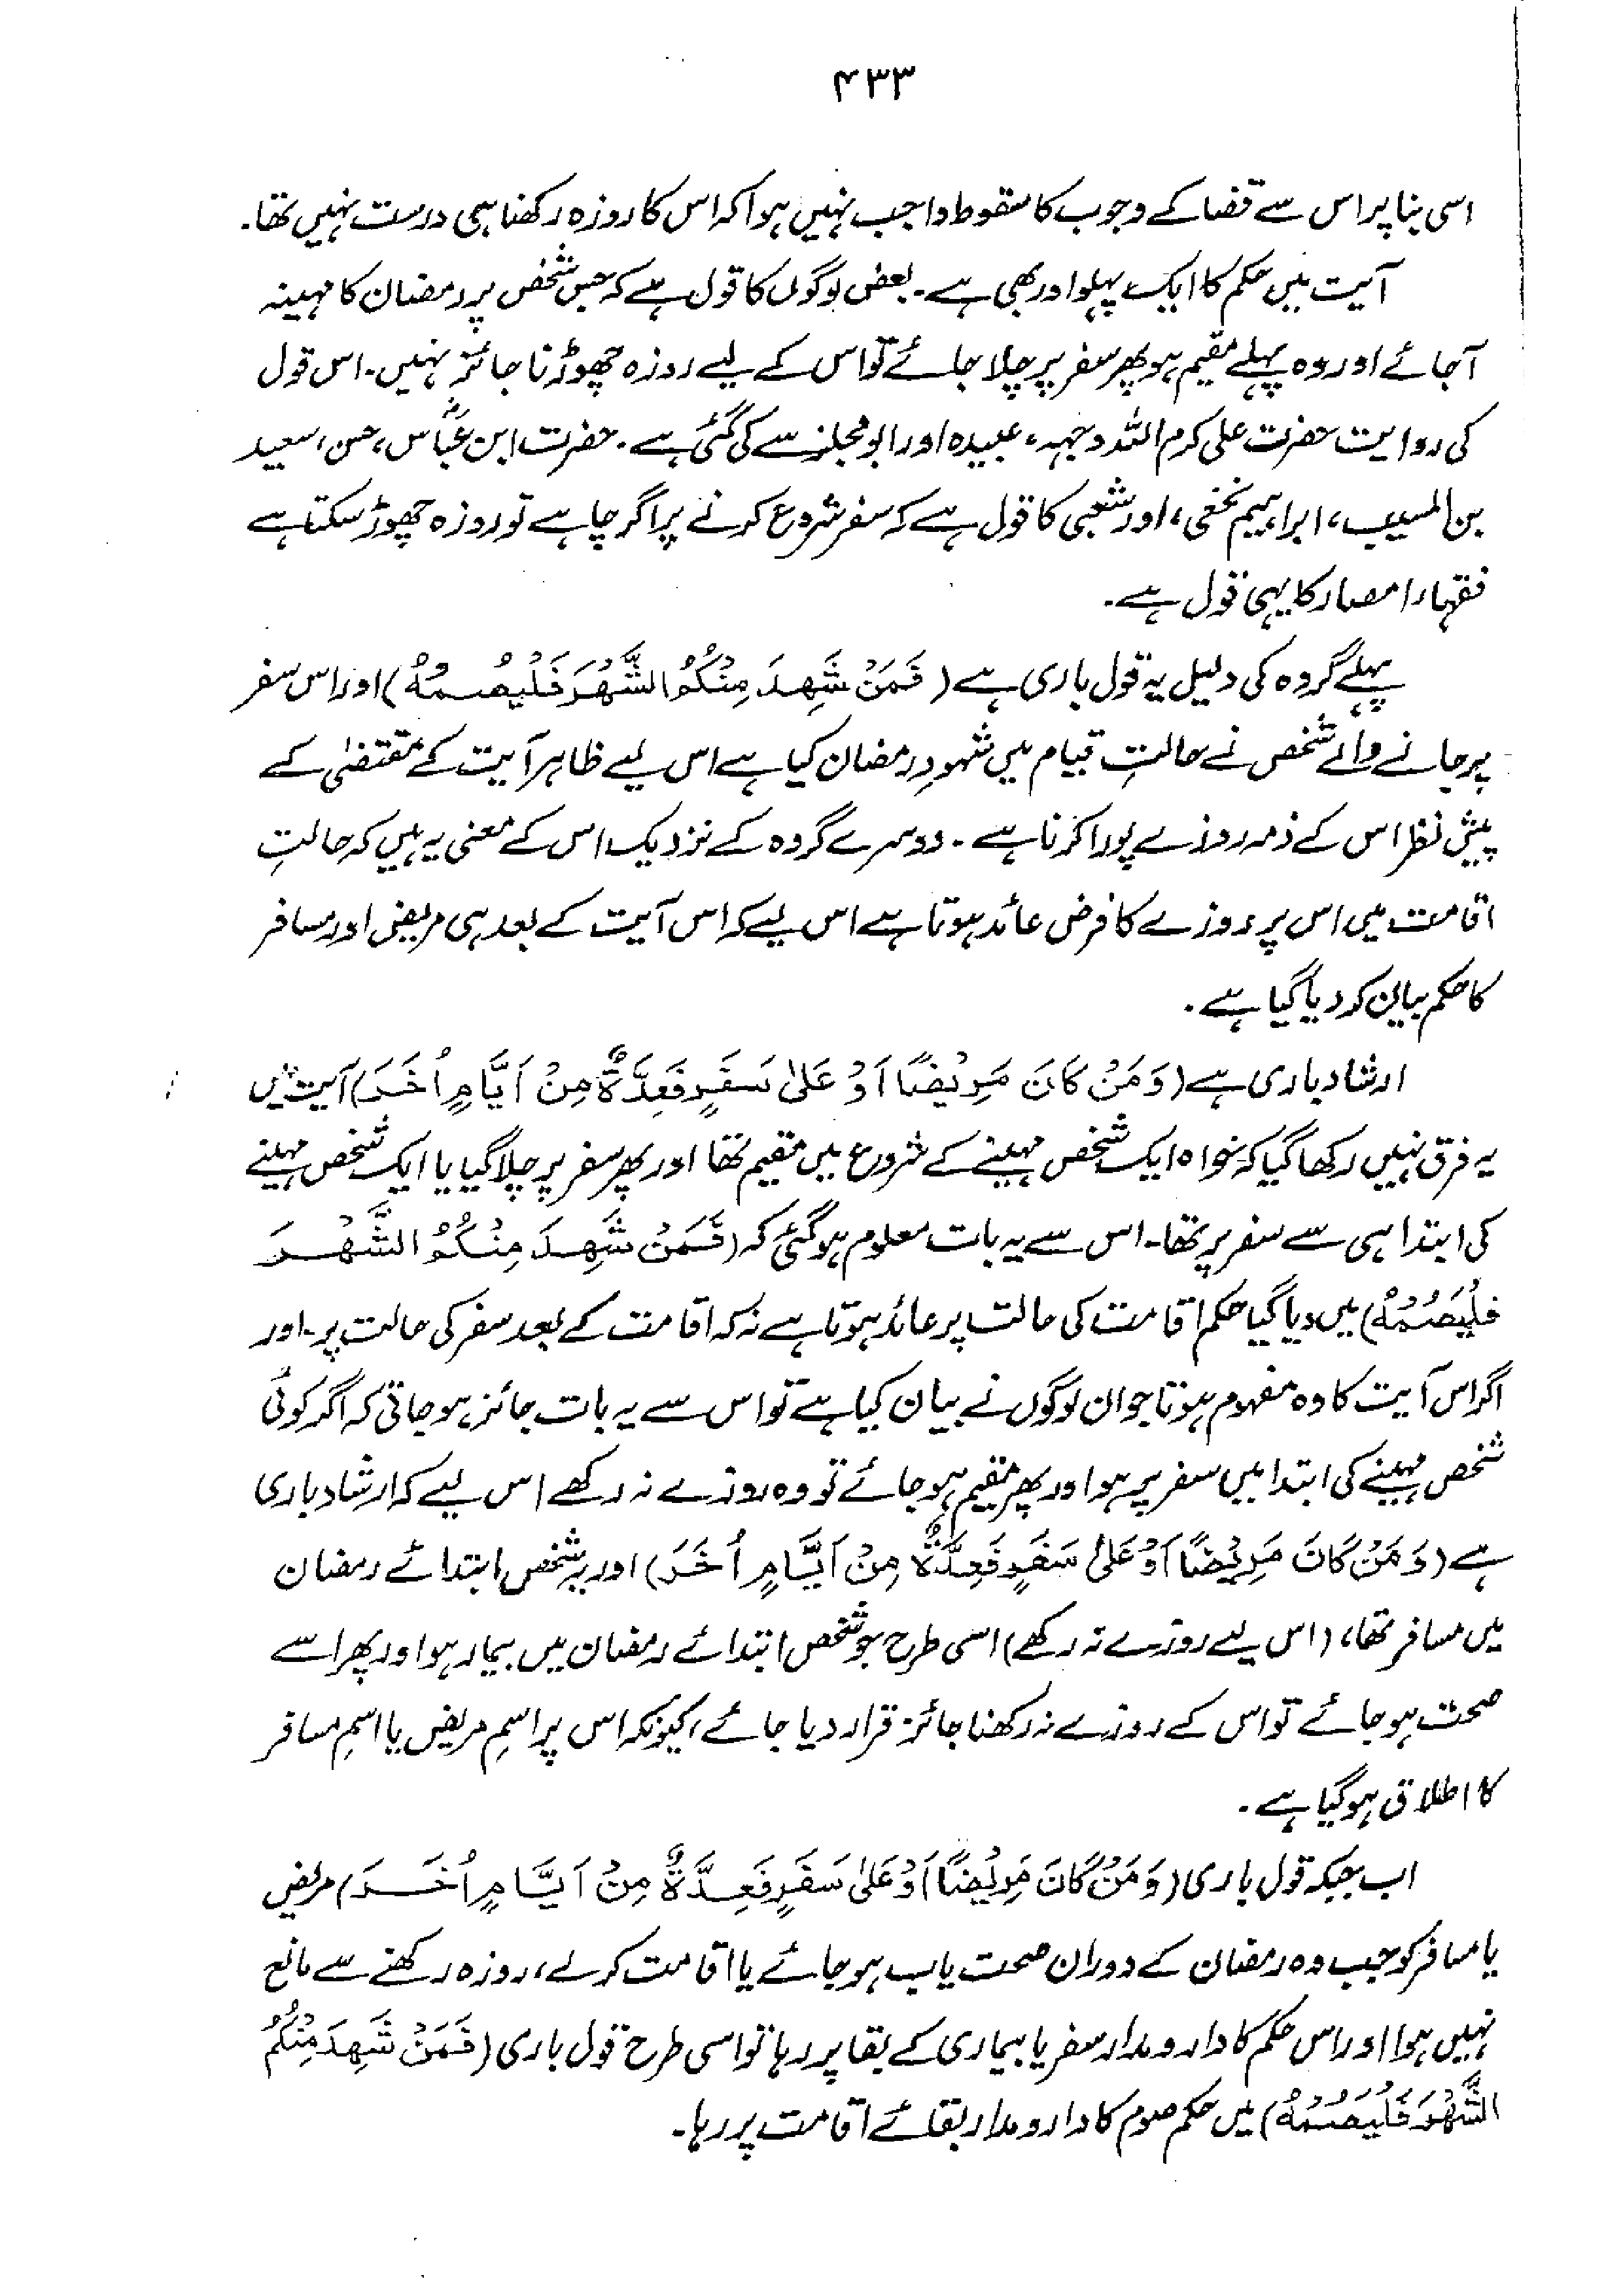 ۴۳۳
اسی بنا پر اس سے قضا کے وجوب کا سقوط واجب نہیں ہوا کہ اس کا روزہ رکھنا ہی درست نہیں تھا۔
آیت میں حکم کا ایک پہلو اور بھی ہے۔ بعض لوگوں کا قول ہے کہ جس شخص پر رمضان کا مہینہ
آجائے اور وہ پہلے مقیم ہو پھر سفر پر چلا جائے تو اس کے لیے روزہ چھوڑنا جائز نہیں۔ اس قول
کی روایت حضرت علی کرم اللہ وجہہ، عبیدہ اور ابومجلز سے کی گئی ہے۔ حضرت ابن عباسؓ، حسن، سعید
بن المسیب، ابراہیم نخعی، اور شعبی کا قول ہے کہ سفر شروع کرنے پر اگر چاہے تو روزہ چھوڑ سکتا ہے
فقہاء امصار کا یہی قول ہے۔
پہلے گروہ کی دلیل یہ قول باری ہے (فَمَنْ شَهِدَ مِنْكُمُ الشَّهْرَ فَلْيَصُمْهُ) اور اس سفر
پر جانے والے شخص نے حالتِ قیام میں شہودِ رمضان کیا ہے اس لیے ظاہر آیت کے مقتضیٰ کے
پیش نظر اس کے ذمہ روزے پورا کرنا ہے۔ دوسرے گروہ کے نزدیک اس کے معنی یہ ہیں کہ حالتِ
اقامت میں اس پر روزے کا فرض عائد ہوتا ہے اس لیے کہ اس آیت کے بعد ہی مریض اور مسافر
کا حکم بیان کر دیا گیا ہے۔
ارشاد باری ہے (وَمَنْ كَانَ مَرِيْضًا اَوْ عَلٰى سَفَرٍ فَعِدَّةٌ مِنْ اَيَّامٍ اُخَرَ) آیت میں
یہ فرق نہیں رکھا گیا کہ خواہ ایک شخص مہینے کے شروع میں مقیم تھا اور پھر سفر پر چلا گیا یا ایک شخص مہینے
کی ابتدا ہی سے سفر پر تھا۔ اس سے یہ بات معلوم ہو گئی کہ (فَمَنْ شَهِدَ مِنْكُمُ الشَّهْرَ
فَلْيَصُمْهُ) میں دیا گیا حکم اقامت کی حالت پر عائد ہوتا ہے نہ کہ اقامت کے بعد سفر کی حالت پر۔ اور
اگر اس آیت کا وہ مفہوم ہوتا جو ان لوگوں نے بیان کیا ہے تو اس سے یہ بات جائز ہو جاتی کہ اگر کوئی
شخص مہینے کی ابتدا میں سفر پر ہو اور پھر مقیم ہو جائے تو وہ روزے نہ رکھے اس لیے کہ ارشاد باری
ہے (وَمَنْ كَانَ مَرِيْضًا اَوْ عَلٰى سَفَرٍ فَعِدَّةٌ مِنْ اَيَّامٍ اُخَرَ) اور یہ شخص ابتدائے رمضان
میں مسافر تھا، (اس لیے روزے نہ رکھے) اسی طرح جو شخص ابتدائے رمضان میں بیمار ہو اور پھر اسے
صحت ہو جائے تو اس کے روزے نہ رکھنا جائز قرار دیا جائے، کیونکہ اس پر اسمِ مریض یا اسمِ مسافر
کا اطلاق ہو گیا ہے۔
اب جبکہ قول باری (وَمَنْ كَانَ مَرِيْضًا اَوْ عَلٰى سَفَرٍ فَعِدَّةٌ مِنْ اَيَّامٍ اُخَرَ) مریض
یا مسافر کو جب وہ رمضان کے دوران صحت یاب ہو جائے یا اقامت کر لے، روزہ رکھنے سے مانع
نہیں ہوا اور اس حکم کا دارومدار سفر یا بیماری کے بقا پر رہا تو اسی طرح قول باری (فَمَنْ شَهِدَ مِنْكُمُ
الشَّهْرَ فَلْيَصُمْهُ) میں حکم صوم کا دارومدار بقائے اقامت پر رہا۔